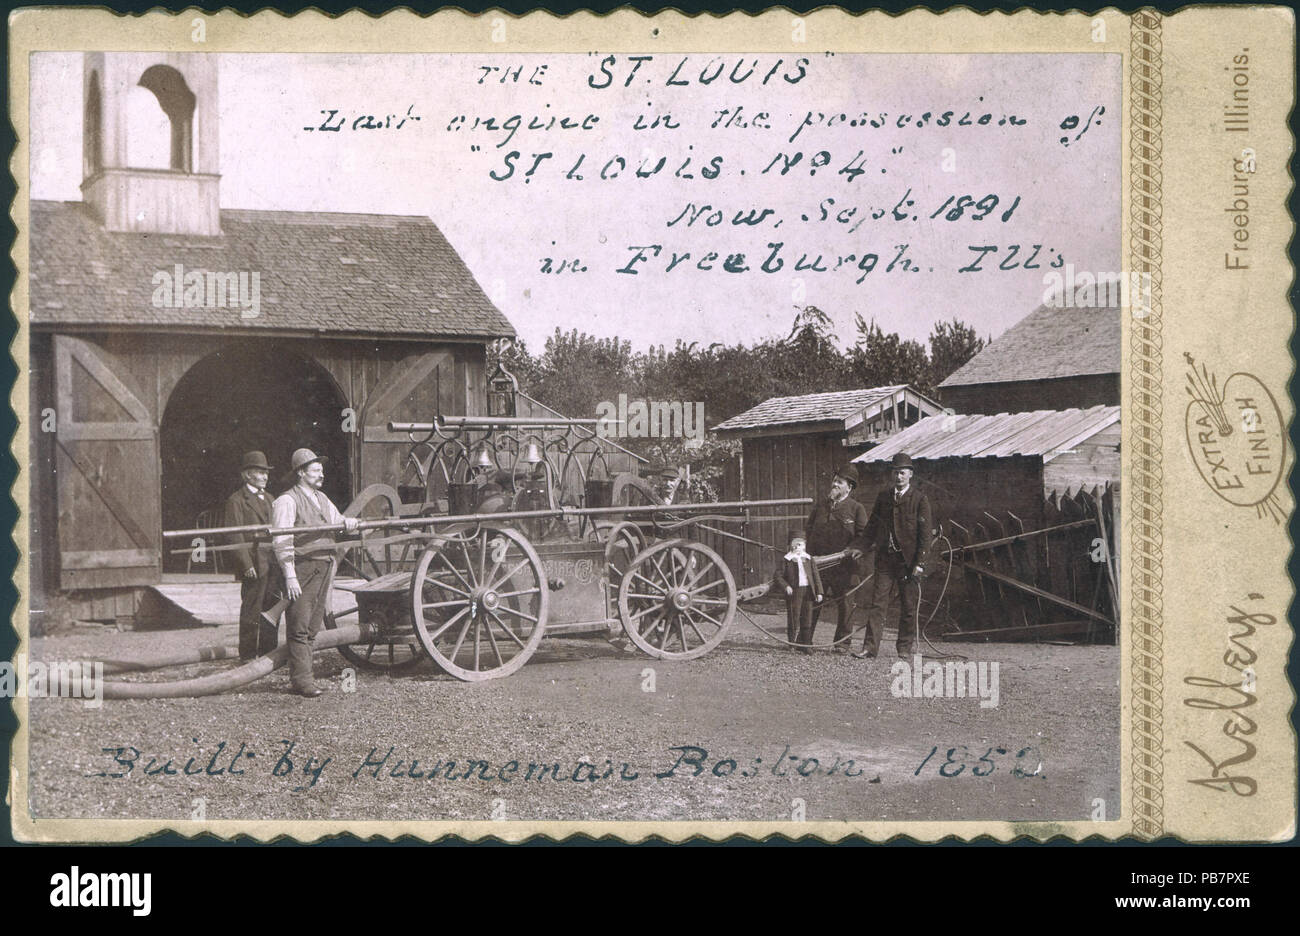 THE "ST. LOUIS"
Last engine in the possession of
"ST. LOUIS. No 4."
Now, Sept. 1891
in Freeburgh. Ill's
Built by Hunneman Boston, 1850.
Kelley,
EXTRA
FINISH
Freeburg, Illinois.
alamy
Image ID: PB7PXE
www.alamy.com